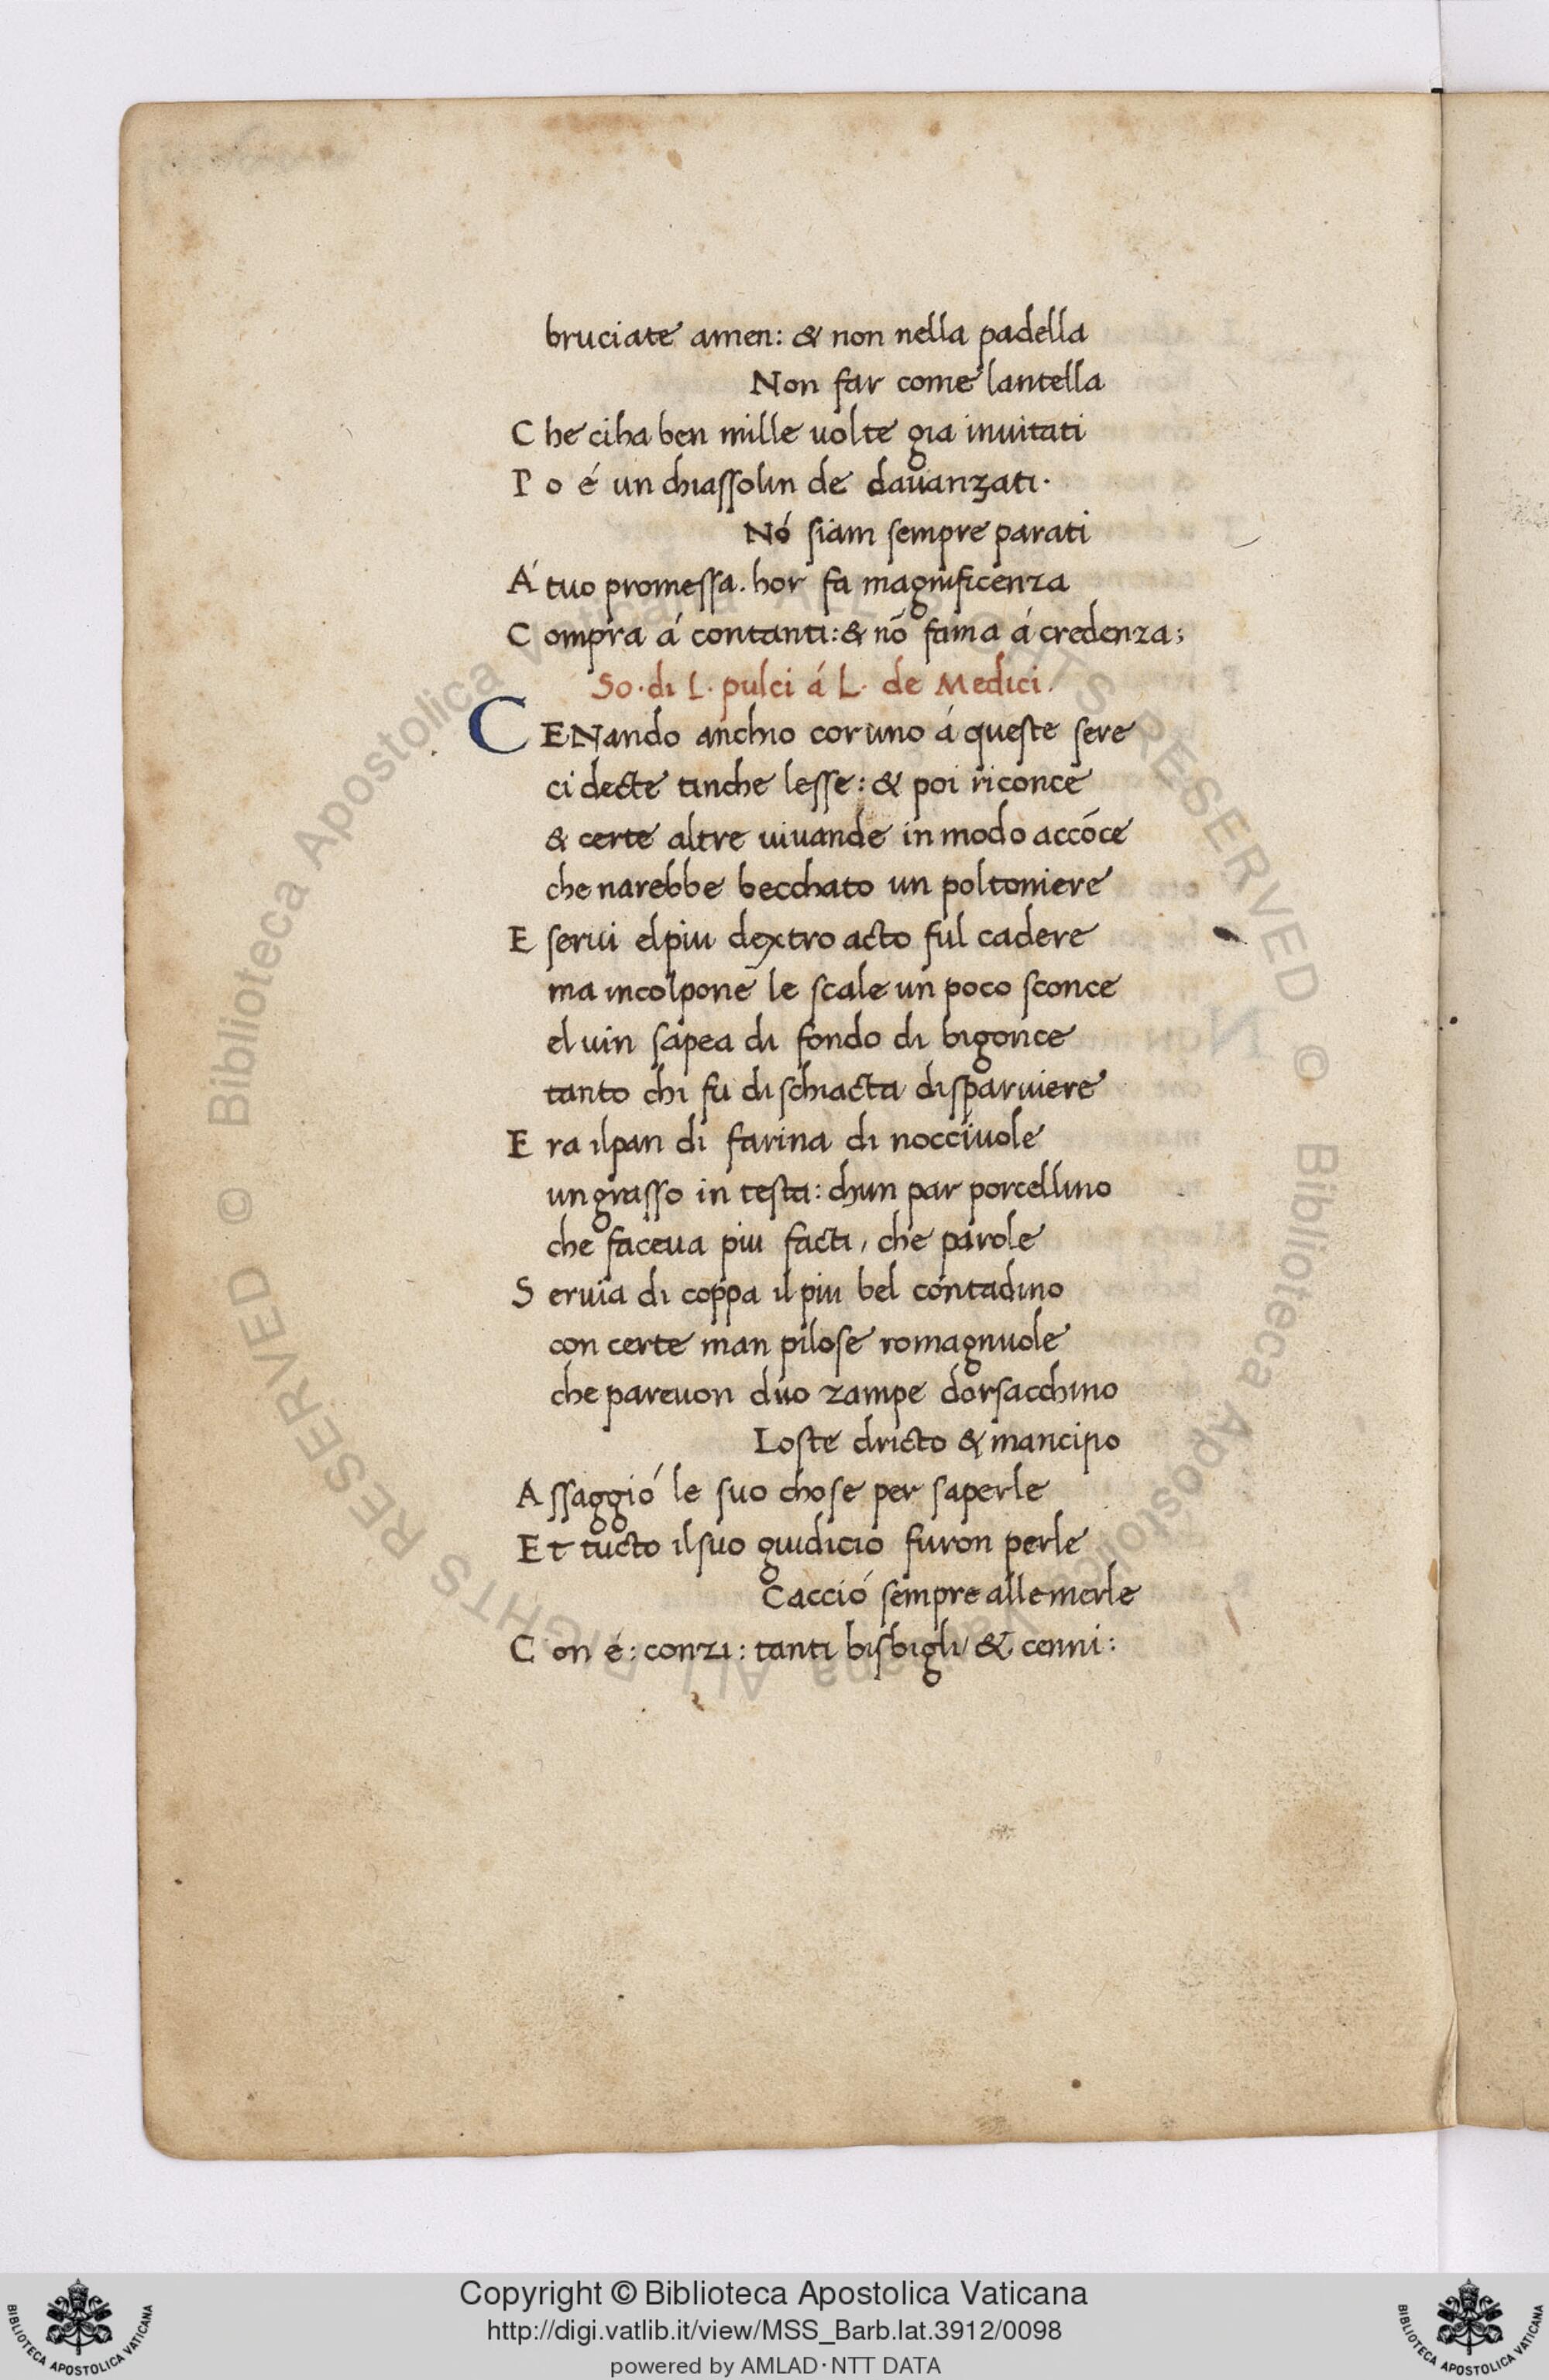 bruciate amen: & non nella padella
Non far come lantella
C he ciha ben mille uolte gia inuitati
P o é un chiassolin de dauanzati.
Nó siam sempre parati
Á tuo promessa. hor fa magnificenza
C ompra á contanti: & nõ fama á credenza;
So. di L. pulci á L. de Medici.
CENando anchio cor uno á queste sere
ci decte tinche lesse: & poi riconce
& certe altre uiuande in modo acconce
che narebbe becchato un poltoniere
E serui elpiu dextro acto sul cadere
ma incolpone le scale un poco sconce
el uin sapea di fondo di bigonce
tanto chi fu di schiacta disparuiere
E ra ilpan di farina di nocciuole
un grasso in testa: chun par porcellino
che faceua piu facti, che parole
S eruia di coppa il piu bel contadino
con certe man pilose romagnuole
che pareuon duo zampe dorsacchino
Loste dricto & mancino
A ssaggió le suo chose per saperle
Et tucto ilsuo giudicio furon perle
Cacció sempre alle merle
C on é: conzi: tanti bisbigli & cenni:
© Biblioteca Apostolica Vaticana ALL RIGHTS RESERVED
© Biblioteca Apostolica Vaticana ALL RIGHTS RESERVED
Copyright © Biblioteca Apostolica Vaticana
http://digi.vatlib.it/view/MSS_Barb.lat.3912/0098
powered by AMLAD·NTT DATA
BIBLIOTECA APOSTOLICA VATICANA
BIBLIOTECA APOSTOLICA VATICANA